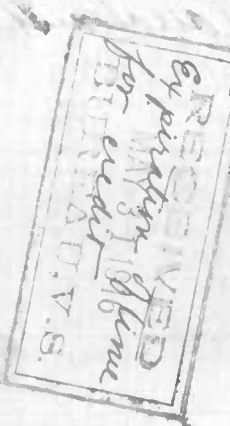 RECEIVED
MAY 31 1916
BUREAU V. S.
Expiration of time
for credit